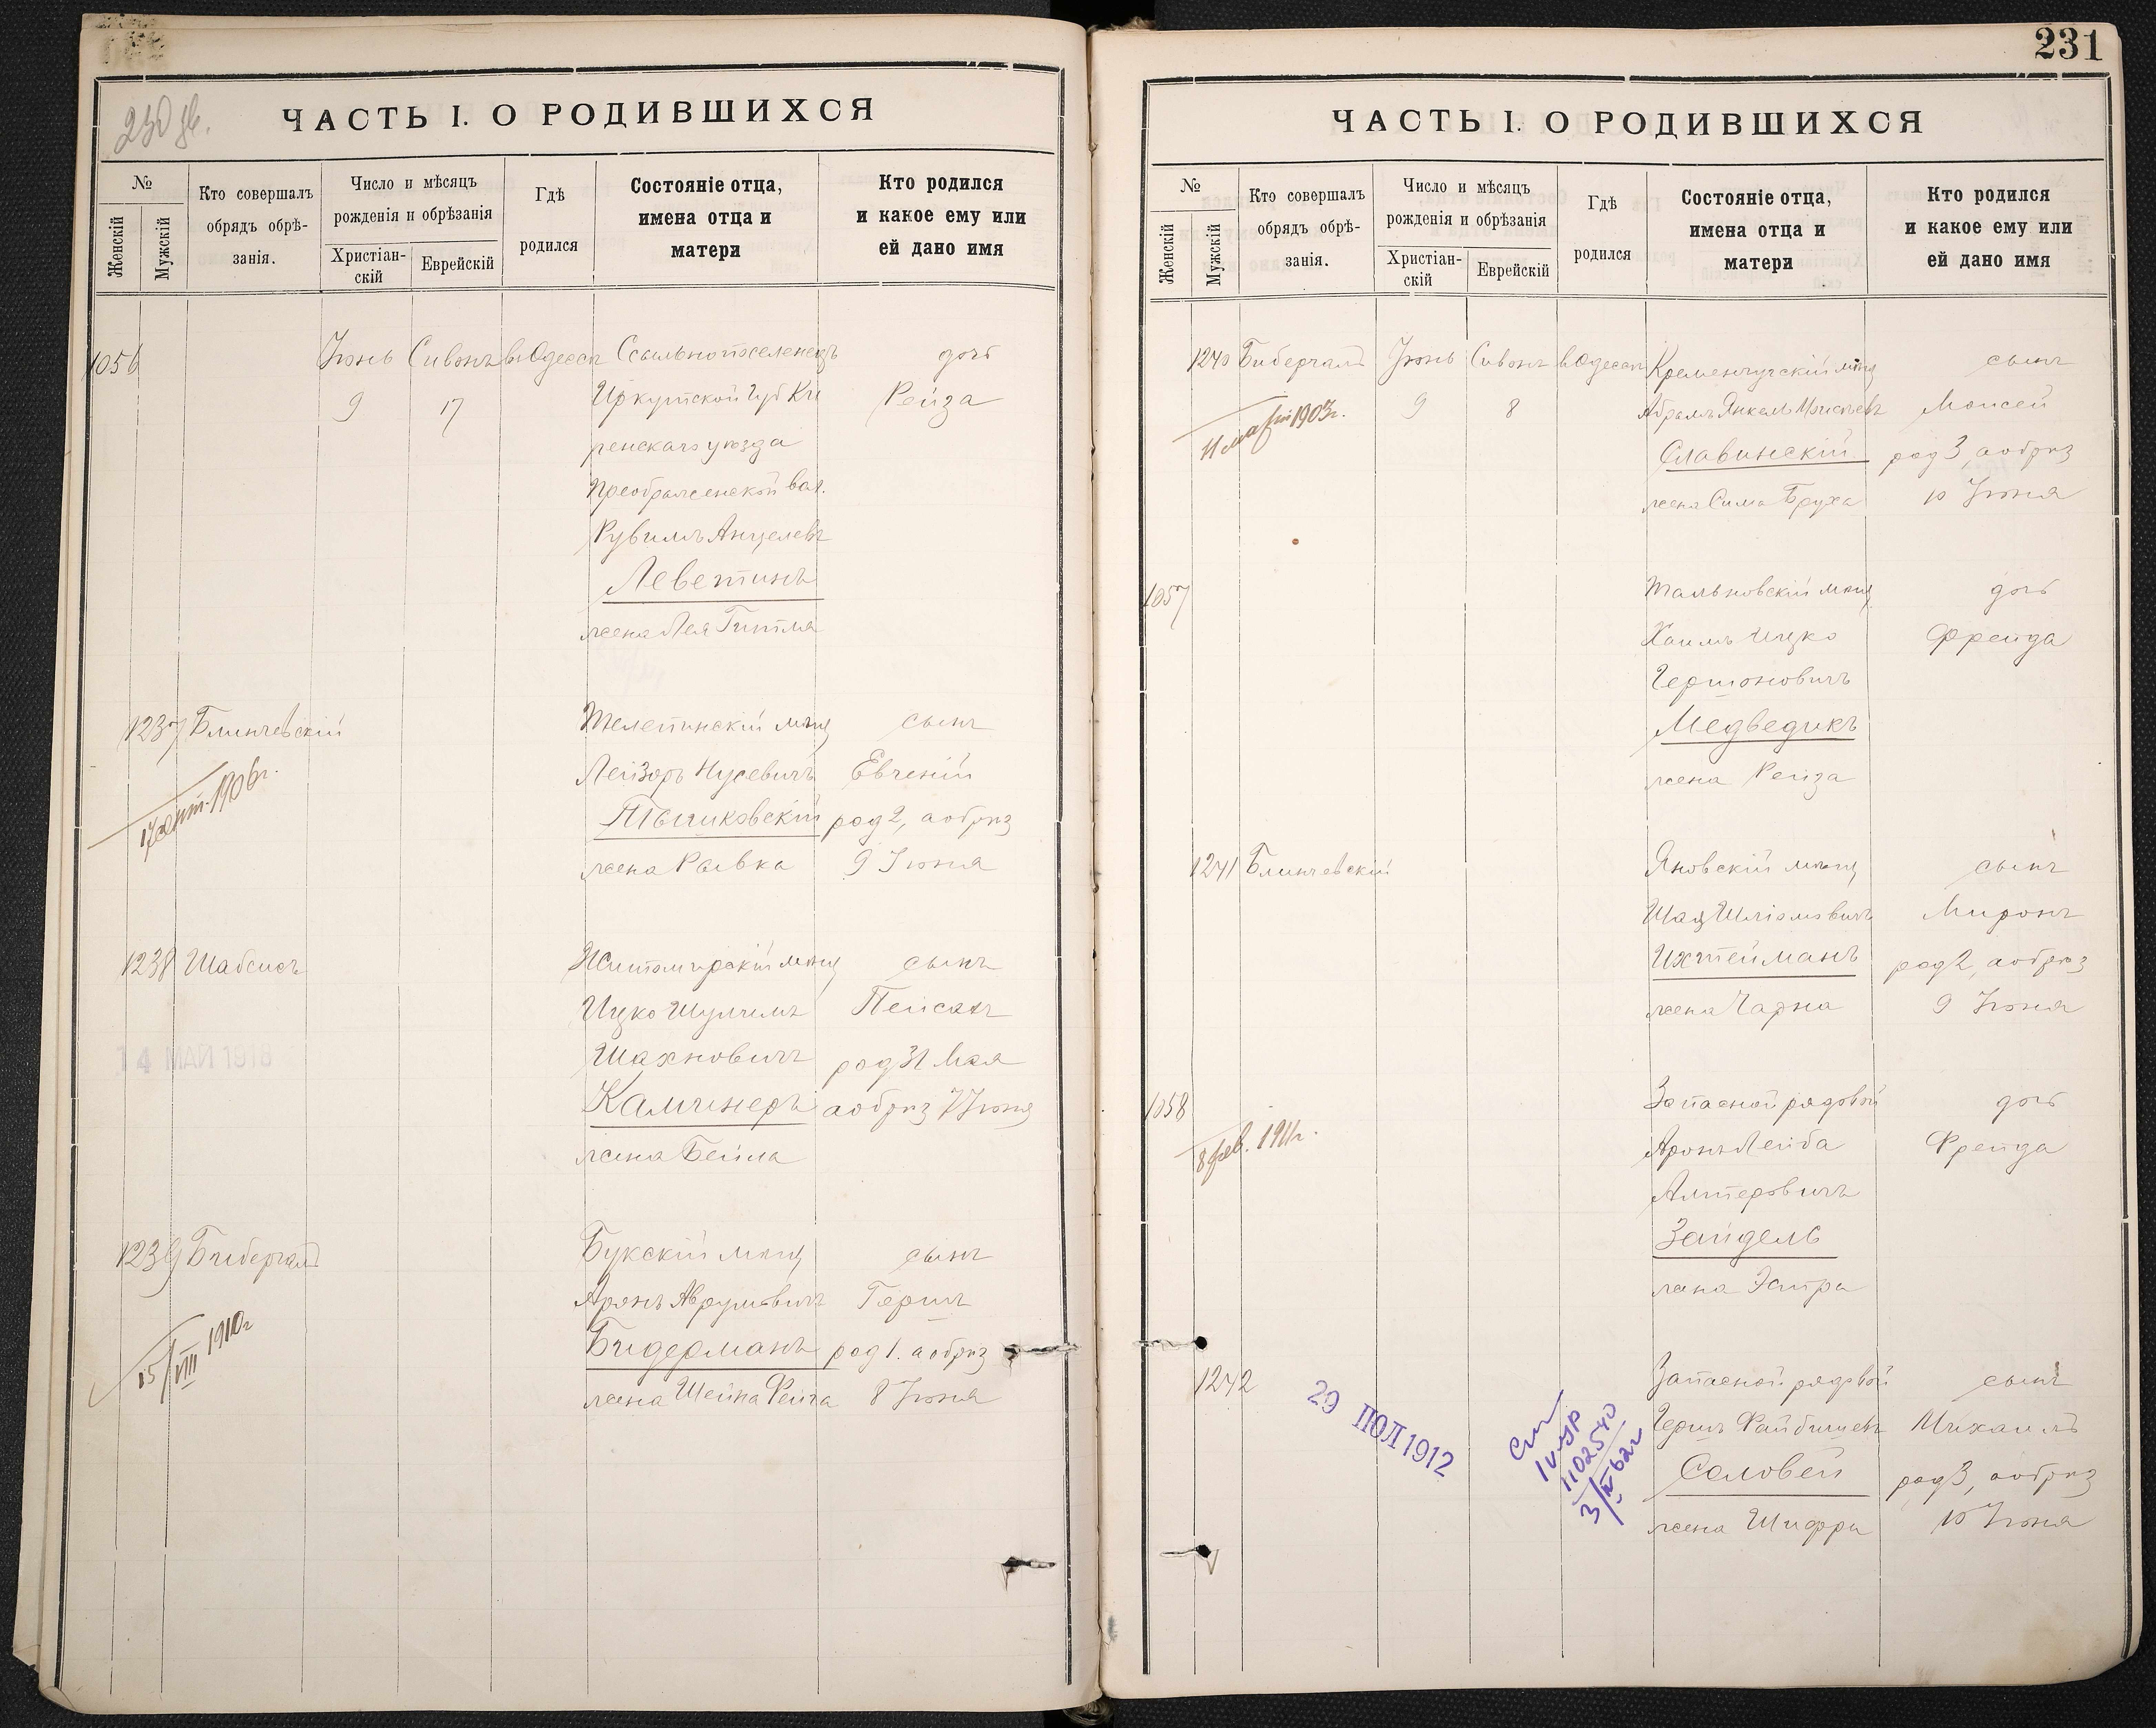 230 об.
ЧАСТЬ I. О РОДИВШИХСЯ
№
Женскій
Мужскій
Кто совершалъ
обрядъ обрѣ-
занія.
Число и мѣсяцъ
рожденія и обрѣзанія
Христіан-
скій
Еврейскій
Гдѣ
родился
Состояніе отца,
имена отца и
матери
Кто родился
и какое ему или
ей дано имя
1056 Іюнь Сивонъ въ Одессѣ Ссыльнопоселенецъ дочь
9 17 Иркутской Губ Ки Рейза
ренскаго уѣзда
Преображенской вол.
Рувимъ Анцелевъ
Леветинъ
жена Лея Гитля
1237 Блинчевскій Телепинскій мѣщ сынъ
Лейзоръ Нусевичъ Евгеній
17 сент. 1906г.
Тышковскій род 2, а обрѣз
жена Рывка 9 Іюня
1238 Шабсисъ Житомирскій мѣщ сынъ
Ицко Шулимъ Пейсахъ
14 МАЙ 1918
Шахновичъ род 31 Мая
Каминеръ а обрѣз 7 Іюня
жена Бейла
1239 Бибергалъ Букскій мѣщ сынъ
Аронъ Аврумовичъ Гершъ
15/VIII 1910г
Бидерманъ род 1. а обрѣз
жена Шейна Фейга 8 Іюня
231
ЧАСТЬ I. О РОДИВШИХСЯ
№
Женскій
Мужскій
Кто совершалъ
обрядъ обрѣ-
занія.
Число и мѣсяцъ
рожденія и обрѣзанія
Христіан-
скій
Еврейскій
Гдѣ
родился
Состояніе отца,
имена отца и
матери
Кто родился
и какое ему или
ей дано имя
1240 Бибергалъ Іюнь Сивонъ въ Одессѣ Кременчугскій мѣщ сынъ
9 8 Абрамъ Янкель Моисѣевъ Моисей
11 марта 1903г.
Славинскій род 3, а обрѣз
жена Сима Бруха 10 Іюня
1057 Тальновскій мѣщ дочь
Хаимъ Ицко Фрейда
Гершоновичъ
Медведикъ
жена Рейза
1241 Блинчевскій Яновскій мѣщ сынъ
Шая Шліомовичъ Миронъ
Ихтейманъ род 2, а обрѣз
жена Чарна 9 Іюня
1058 Запасной рядовой дочь
8 фев. 1911г.
Аронъ Лейба Фрейда
Алтеровичъ
Зайдель
жена Эстра
1242 Запасной рядовой сынъ
29 ІЮЛ 1912
1102540
3/IV 62г
Гершъ Файбишевъ Михаилъ
Соловей род 3, а обрѣз
жена Шифра 10 Іюня